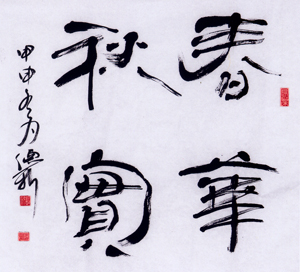 春華
秋實
甲申冬月